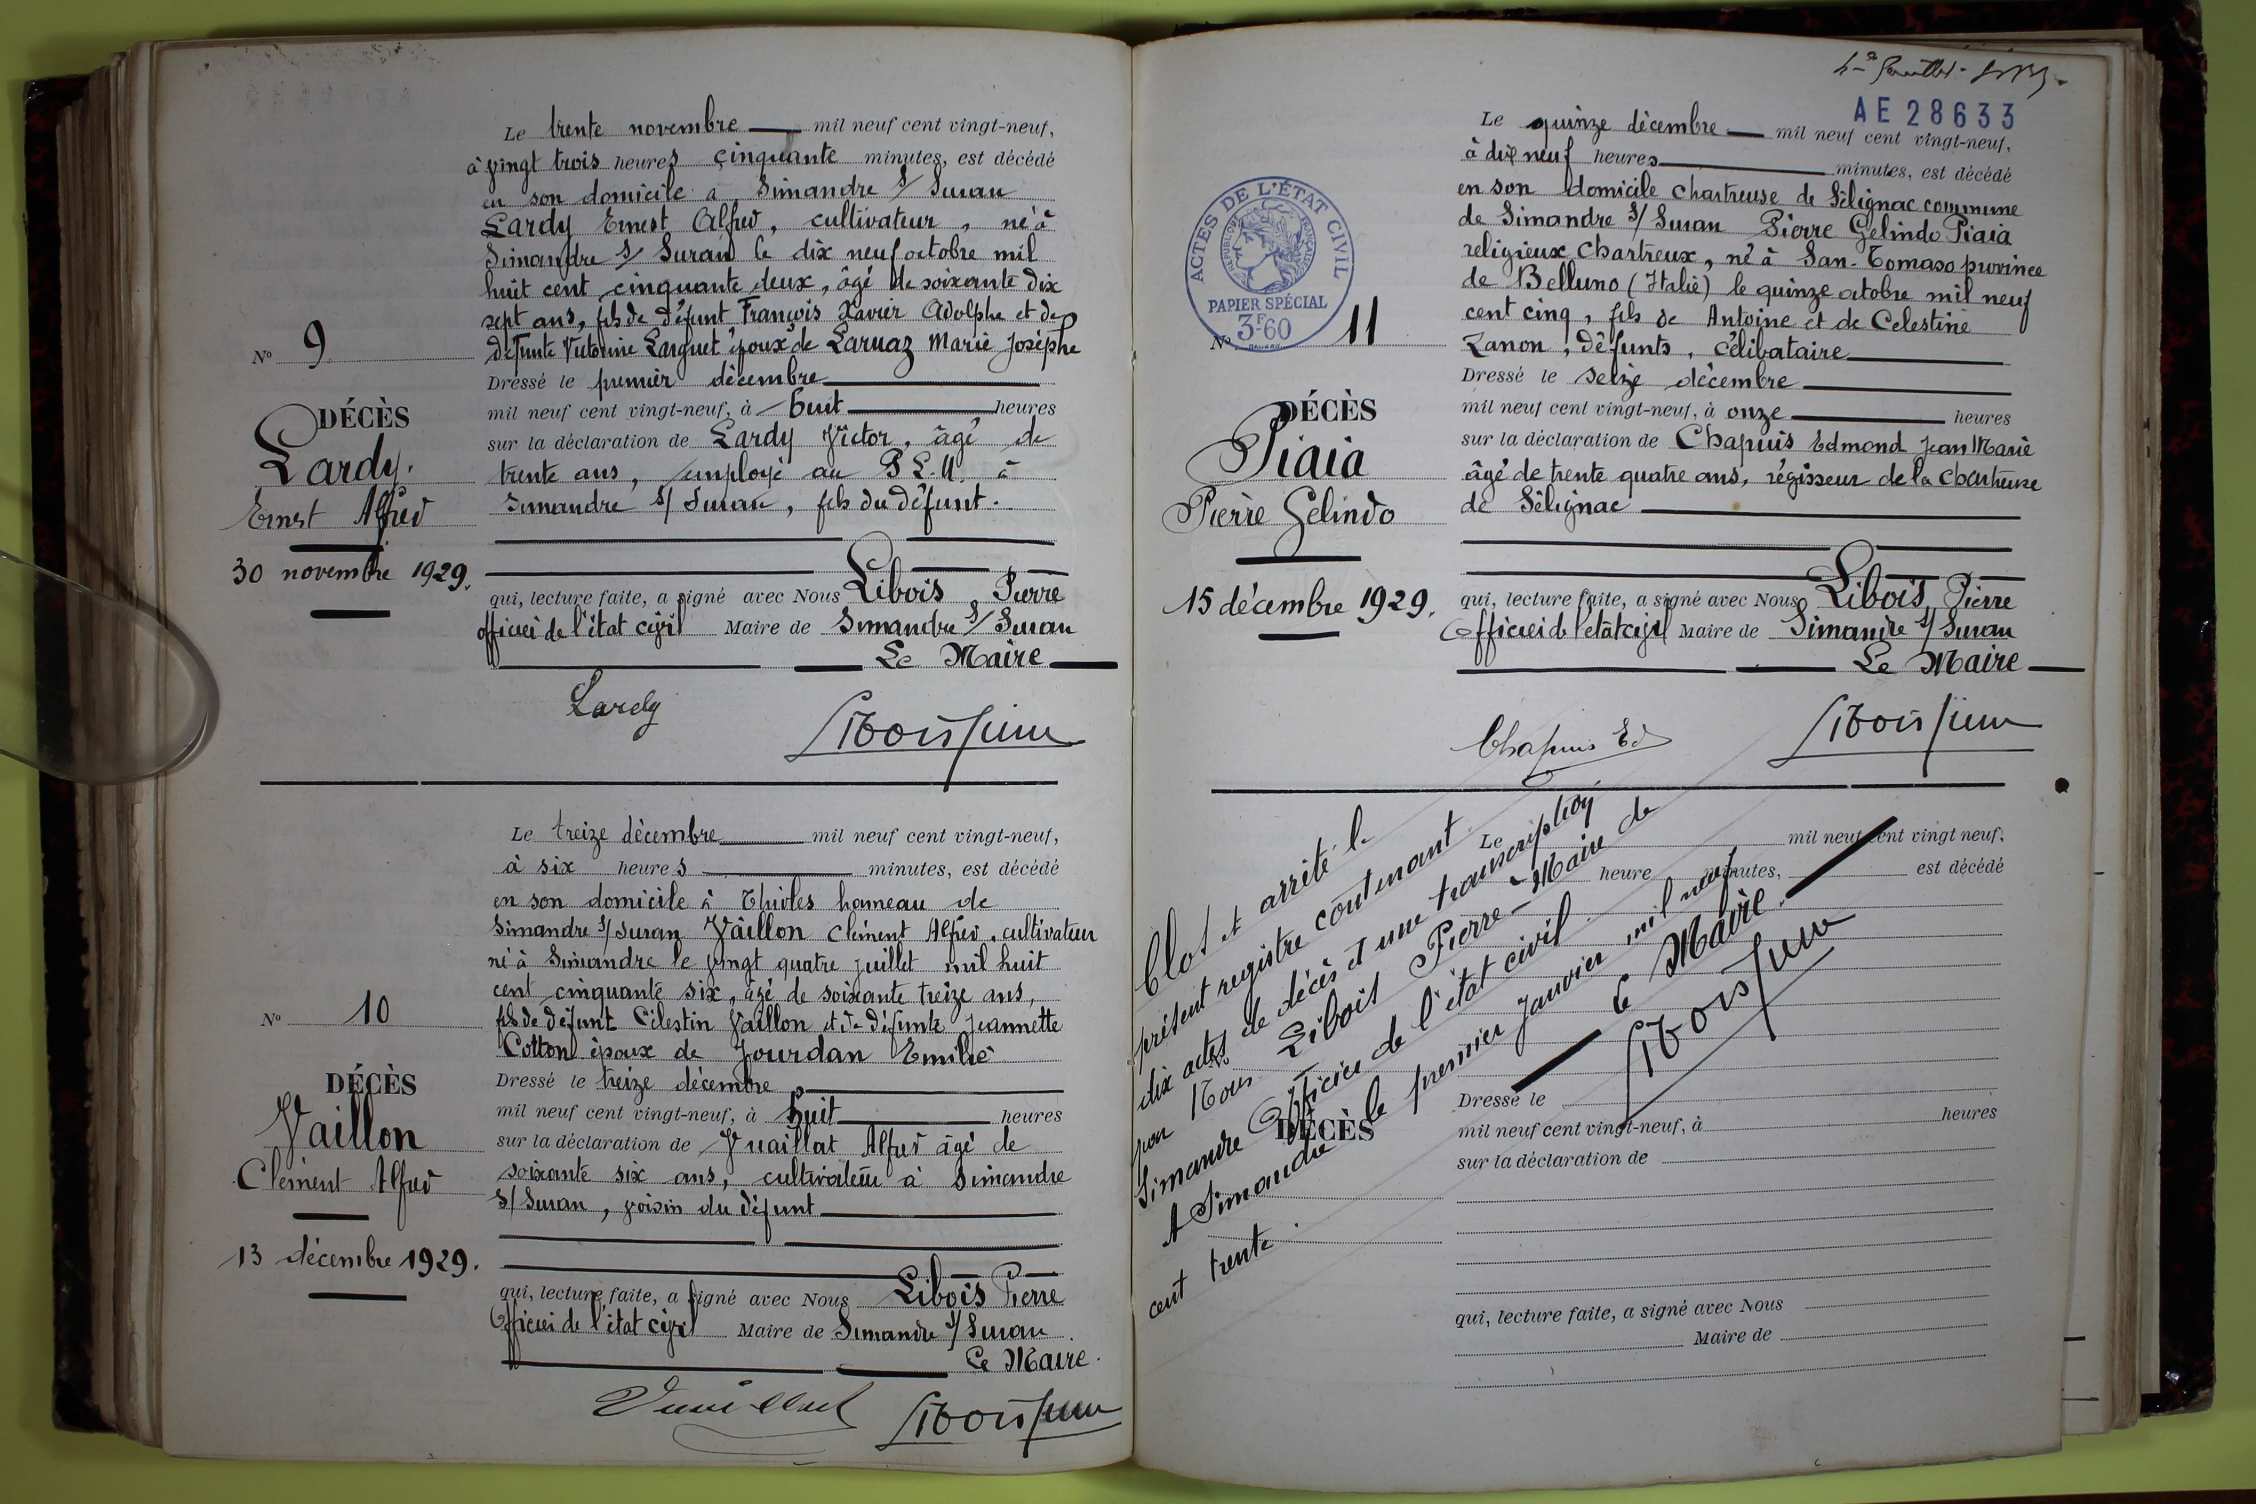 Le trente novembre mil neuf cent vingt-neuf,
à vingt trois heures cinquante minutes, est décédé
en son domicile à Simandre s/ Suran
Lardy Ernest Alfred, cultivateur, né à
Simandre s/ Suran le dix neuf octobre mil
huit cent cinquante deux, âgé de soixante dix
sept ans, fils de défunt François Xavier Adolphe et de
défunte Victorine Larguet époux de Laruaz Marie Josèphe
Nº 9
Dressé le premier décembre
DÉCÈS
mil neuf cent vingt-neuf, à huit heures
Lardy.
sur la déclaration de Lardy Victor, âgé de
trente ans, employé au P L. M. à
Ernest Alfred
Simandre s/ Suran, fils du défunt.
30 novembre 1929.
qui, lecture faite, a signé avec Nous Libois Pierre
officier de l'état civil Maire de Simandre s/ Suran
Le Maire
Lardy
Libois Pierre
Le treize décembre mil neuf cent vingt-neuf,
à six heures minutes, est décédé
en son domicile à Thioles hameau de
Simandre s/ Suran Vaillon Clément Alfred, cultivateur
né à Simandre le vingt quatre juillet mil huit
cent cinquante six, âgé de soixante treize ans,
fils de défunt Célestin Vaillon et de défunte Jeannette
Cotton époux de Jourdan Emilie
Nº 10
Dressé le treize décembre
DÉCÈS
mil neuf cent vingt-neuf, à huit heures
Vaillon
sur la déclaration de Vuaillat Alfred âgé de
Clément Alfred
soixante six ans, cultivateur à Simandre
s/ Suran, voisin du défunt
13 décembre 1929.
qui, lecture faite, a signé avec Nous Libois Pierre
Officier de l'état civil Maire de Simandre s/ Suran
Le Maire.
Libois Pierre
AE 28633
Le quinze décembre mil neuf cent vingt-neuf,
à dix neuf heures minutes, est décédé
en son domicile chartreuse de Sélignac commune
de Simandre s/ Suran Pierre Gelindo Piaia
religieux chartreux, né à San-Tomaso province
de Belluno (Italie) le quinze octobre mil neuf
cent cinq, fils de Antoine et de Celestine
Zanon, défunts, célibataire
ACTES DE L'ÉTAT CIVIL
RÉPUBLIQUE FRANÇAISE
PAPIER SPÉCIAL
3F60
Nº 11
Dressé le seize décembre
DÉCÈS
mil neuf cent vingt-neuf, à onze heures
Piaia
sur la déclaration de Chapuis Edmond Jean Marie
âgé de trente quatre ans, régisseur de la chartreuse
Pierre Gelindo
de Sélignac
15 décembre 1929.
qui, lecture faite, a signé avec Nous Libois Pierre
Officier de l'état civil Maire de Simandre s/ Suran
Le Maire
Chapuis Ed
Libois Pierre
Clos et arrêté le
présent registre contenant
dix actes de décès et une transcription
par Nous Libois Pierre - Maire de
Simandre Officier de l'état civil
A Simandre le premier janvier mil neuf
cent trente.
Le Maire.
Libois Pierre
Le mil neuf cent vingt neuf,
heure minutes, est décédé
Dressé le
DÉCÈS
mil neuf cent vingt-neuf, à heures
sur la déclaration de
qui, lecture faite, a signé avec Nous
Maire de